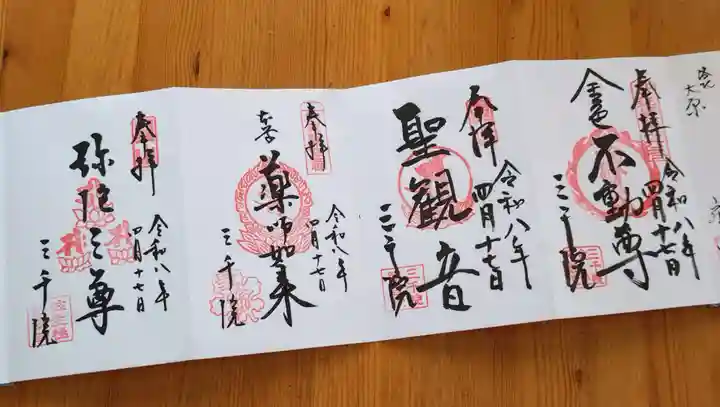 奉拝
令和八年
四月十七日
金色不動尊
三千院
奉拝
令和八年
四月十七日
聖観音
三千院
奉拝
令和八年
四月十七日
本尊
薬師如来
三千院
奉拝
令和八年
四月十七日
弥陀三尊
三千院
大原